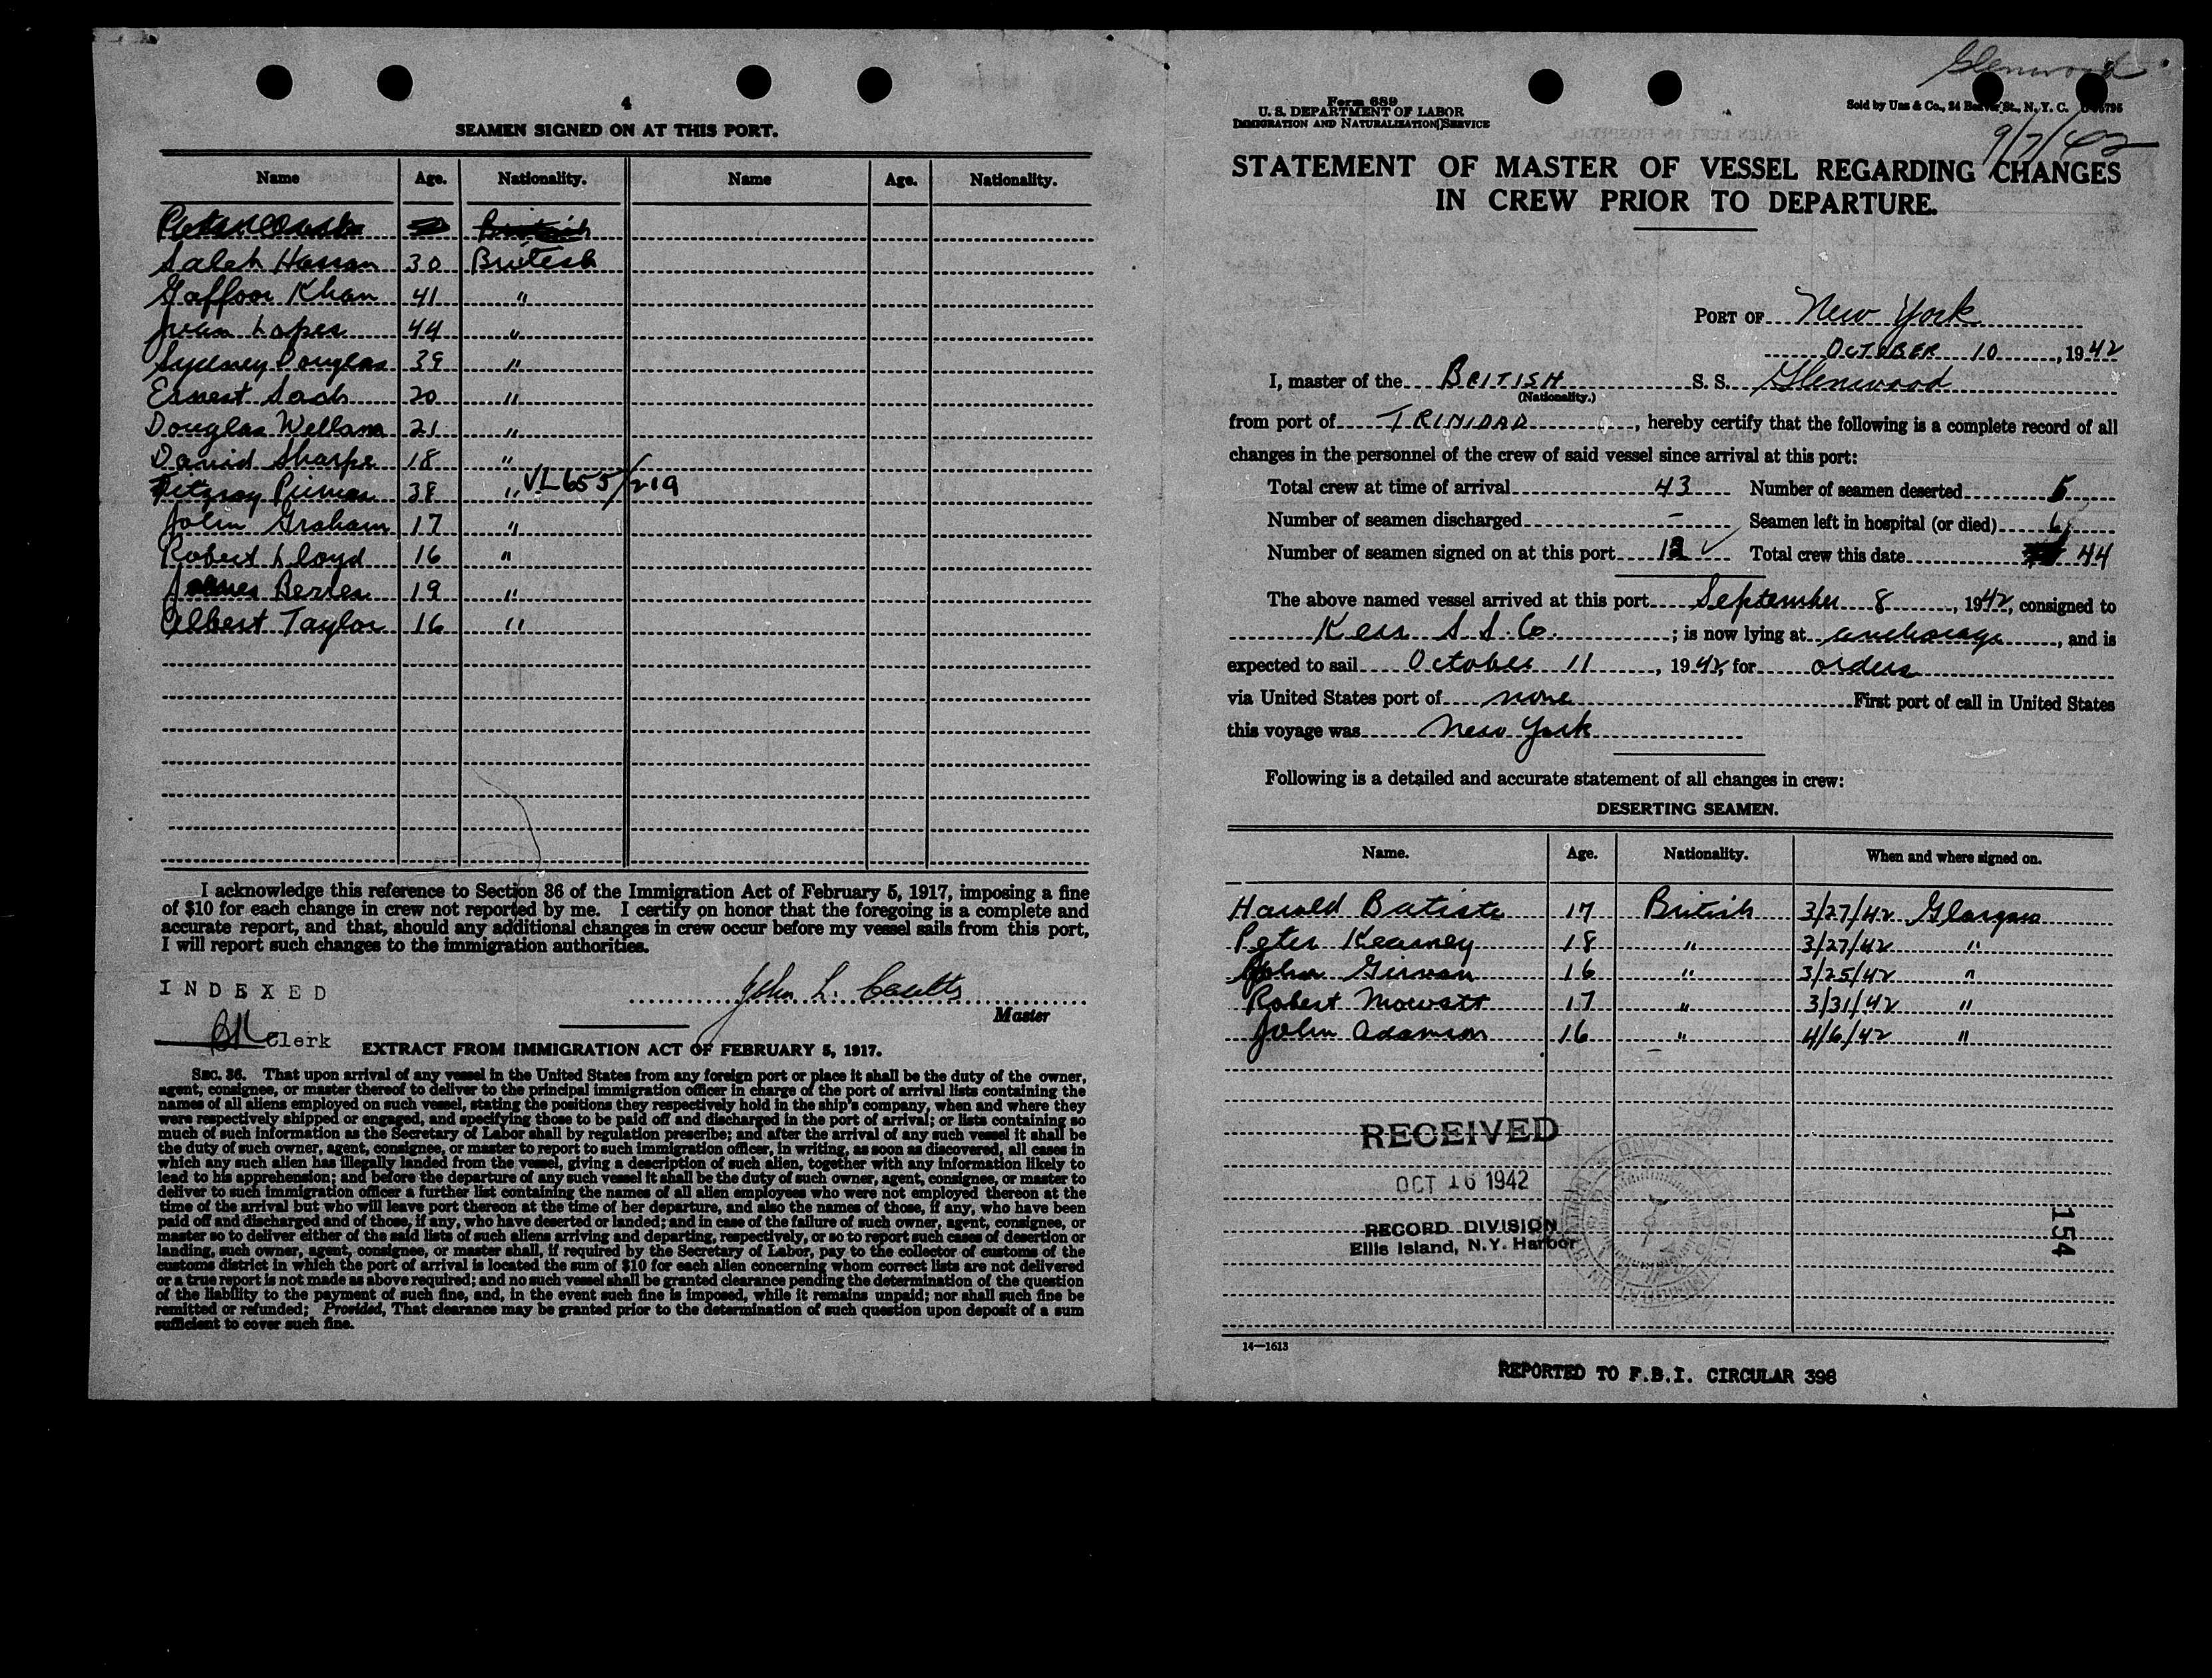 4
SEAMEN SIGNED ON AT THIS PORT.
Name Age. Nationality. Name Age. Nationality.
British
Saleh Hassan 30 British
Gaffoor Khan 41 "
Juan Lopes 44 "
Sydney Douglas 39 "
Ernest Sach 20 "
Douglas Wellam 21 "
David Sharpe 18 "
Fitzroy 38 " VL 655/219
John Graham 17 "
Robert Lloyd 16 "
James 19 "
Albert Taylor 16 "
I acknowledge this reference to Section 36 of the Immigration Act of February 5, 1917, imposing a fine
of $10 for each change in crew not reported by me. I certify on honor that the foregoing is a complete and
accurate report, and that, should any additional changes in crew occur before my vessel sails from this port,
I will report such changes to the immigration authorities.
INDEXED
John L. Coutts
Master
Clerk
EXTRACT FROM IMMIGRATION ACT OF FEBRUARY 5, 1917.
SEC. 36. That upon arrival of any vessel in the United States from any foreign port or place it shall be the duty of the owner,
agent, consignee, or master thereof to deliver to the principal immigration officer in charge of the port of arrival lists containing the
names of all aliens employed on such vessel, stating the positions they respectively hold in the ship's company, when and where they
were respectively shipped or engaged, and specifying those to be paid off and discharged in the port of arrival; or lists containing so
much of such information as the Secretary of Labor shall by regulation prescribe; and after the arrival of any such vessel it shall be
the duty of such owner, agent, consignee, or master to report to such immigration officer, in writing, as soon as discovered, all cases in
which any such alien has illegally landed from the vessel, giving a description of such alien, together with any information likely to
lead to his apprehension; and before the departure of any such vessel it shall be the duty of such owner, agent, consignee, or master to
deliver to such immigration officer a further list containing the names of all alien employees who were not employed thereon at the
time of the arrival but who will leave port thereon at the time of her departure, and also the names of those, if any, who have been
paid off and discharged and of those, if any, who have deserted or landed; and in case of the failure of such owner, agent, consignee, or
master so to deliver either of the said lists of such aliens arriving and departing, respectively, or so to report such cases of desertion or
landing, such owner, agent, consignee, or master shall, if required by the Secretary of Labor, pay to the collector of customs of the
customs district in which the port of arrival is located the sum of $10 for each alien concerning whom correct lists are not delivered
or a true report is not made as above required; and no such vessel shall be granted clearance pending the determination of the question
of the liability to the payment of such fine, and, in the event such fine is imposed, while it remains unpaid; nor shall such fine be
remitted or refunded; Provided, That clearance may be granted prior to the determination of such question upon deposit of a sum
sufficient to cover such fine.
Glenwood
Form 689
U. S. DEPARTMENT OF LABOR
IMMIGRATION AND NATURALIZATION SERVICE
Sold by Unz & Co., 24 Beaver St., N. Y. C.
9/7/42
STATEMENT OF MASTER OF VESSEL REGARDING CHANGES
IN CREW PRIOR TO DEPARTURE.
PORT OF New York
OCTOBER 10, 1942
I, master of the BRITISH S. S. Glenwood
(Nationality.)
from port of TRINIDAD, hereby certify that the following is a complete record of all
changes in the personnel of the crew of said vessel since arrival at this port:
Total crew at time of arrival 43 Number of seamen deserted 5
Number of seamen discharged - Seamen left in hospital (or died) 6
Number of seamen signed on at this port 12 ✓ Total crew this date 44
The above named vessel arrived at this port September 8, 1942, consigned to
Kerr S. S. Co.; is now lying at anchorage, and is
expected to sail October 11, 1942, for orders
via United States port of none First port of call in United States
this voyage was New York
Following is a detailed and accurate statement of all changes in crew:
DESERTING SEAMEN.
Name. Age. Nationality. When and where signed on.
Harold Batiste 17 British 3/27/42 Glasgow
Peter Kearney 18 " 3/27/42 "
John Girvan 16 " 3/25/42 "
Robert Mowatt 17 " 3/31/42 "
John Adamson 16 " 4/6/42 "
RECEIVED
OCT 16 1942
RECORD DIVISION
Ellis Island, N.Y. Harbor
154
14—1613
REPORTED TO F.B.I. CIRCULAR 398